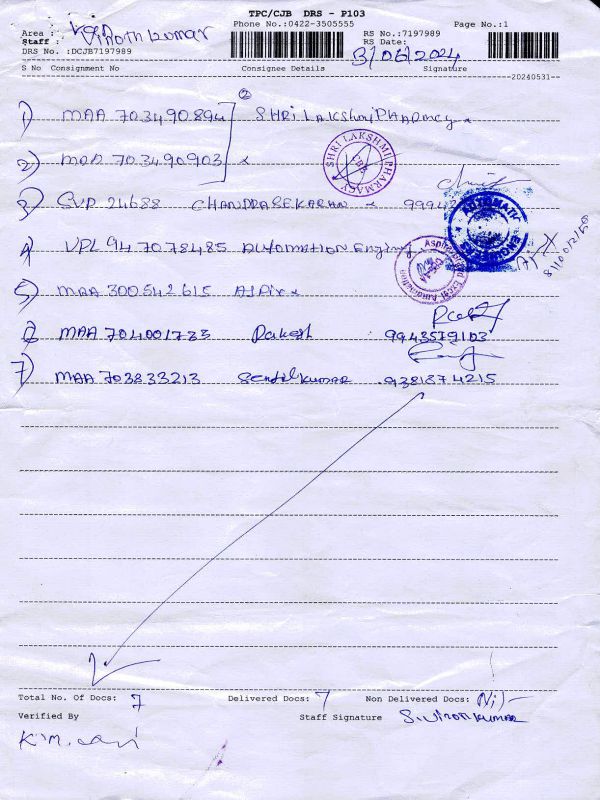 TPC/CJB DRS - P103
Phone No.:0422-3505555 Page No.:1
Area :
Staff : Vinoth kumar
DRS No. :DCJB7197989
RS No.:7197989
RS Date: 3/06/2024
S No Consignment No Consignee Details Signature
--20240531--
1) MAA 703490894 ② SHRI LAKSHMI PHARMACY
2) MAA 703490903
SHRI LAKSHMI PHARMACY CBE
3) SVP 24688 CHANDRASEKARAN
AUTOMATIC
4) VPL 947078485 AUTOMATION Engineering
5) MAA 300542615
6) MAA 704001733 Rakesh 9943579103
7) MAA 703833213 Senthil kumar 9381874215
Total No. Of Docs: 7 Delivered Docs: 7 Non Delivered Docs: Nil-
Verified By Staff Signature S. Vinoth kumar